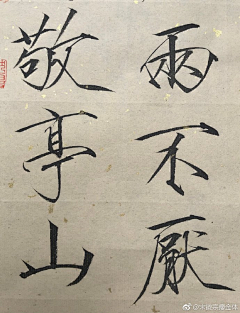 兩不厭
敬亭山